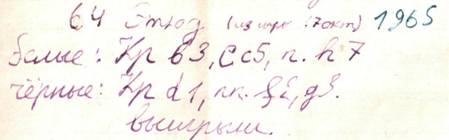 64 Этюд (из игр 1965
белые: Кр b3, Cc5, п. h7
чёрные: Кр d1, пп. g2, g3.
выигрыш.